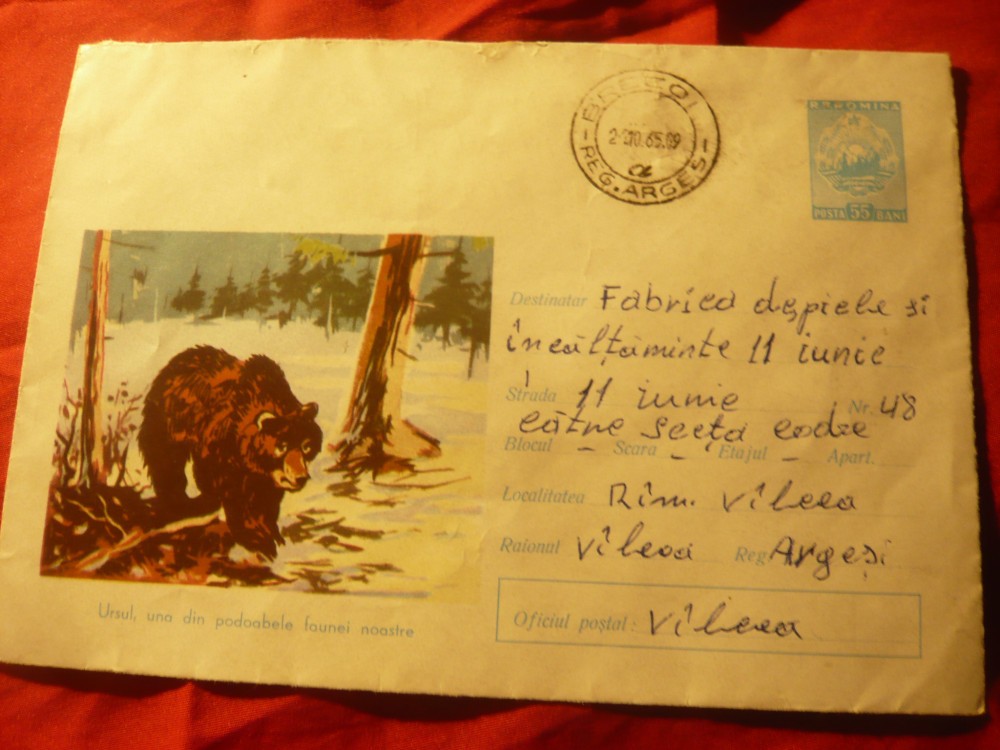 BREZOI
2-10.65.09
a
REG. ARGEȘ
R.P.ROMINA
POSTA 55 BANI
Destinatar Fabrica de piele si
încălțăminte 11 iunie
Strada 11 iunie Nr. 48
către secta
Blocul – Scara – Etajul – Apart.
Localitatea Rîm. Vîlcea
Raionul Vîlcea Reg. Argeși
Oficiul poștal: Vîlcea
Ursul, una din podoabele faunei noastre